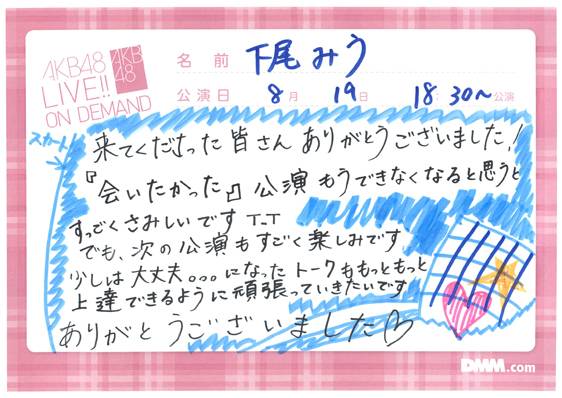 AKB48
LIVE!!
ON DEMAND
AKB
48
名前 下尾みう
公演日 8月 19日 18:30〜公演
スカート
来てくださった皆さんありがとうございました!
『会いたかった』公演もうできなくなると思うと
すっごくさみしいです T_T
でも、次の公演もすごく楽しみです
少しは大丈夫。。。になったトークももっともっと
上達できるように頑張っていきたいです
ありがとうございました♡
DMM.com